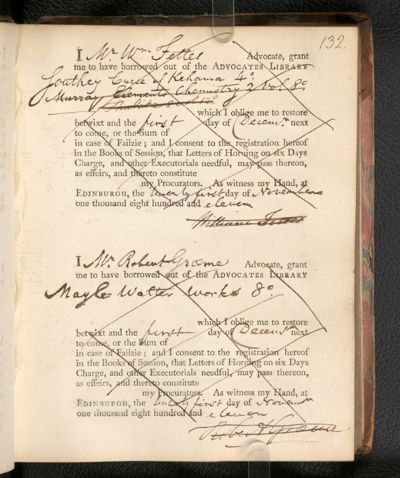 132.
I Mr. Wm Fettes Advocate, grant
me to have borrowed out of the ADVOCATES LIBRARY
Southey Curse of Kehama 4o.
Murray Elements Chemistry 2 Vol. 8o.
which I oblige me to restore
betwixt and the first day of Decemr. next
to come, or the Sum of
in case of Failzie; and I consent to the registration hereof
in the Books of Session, that Letters of Horning on six Days
Charge, and other Executorials needful, may pass thereon,
as effeirs, and thereto constitute
my Procurators. As witness my Hand, at
EDINBURGH, the twenty first day of November
one thousand eight hundred and eleven
William Fettes
I Mr. Robert Græme Advocate, grant
me to have borrowed out of the ADVOCATES LIBRARY
Walter Works 8o
which I oblige me to restore
betwixt and the first day of Decemr. next
to come, or the Sum of
in case of Failzie; and I consent to the registration hereof
in the Books of Session, that Letters of Horning on six Days
Charge, and other Executorials needful, may pass thereon,
as effeirs, and thereto constitute
my Procurators. As witness my Hand, at
EDINBURGH, the twenty first day of November
one thousand eight hundred and eleven
Robert Græme